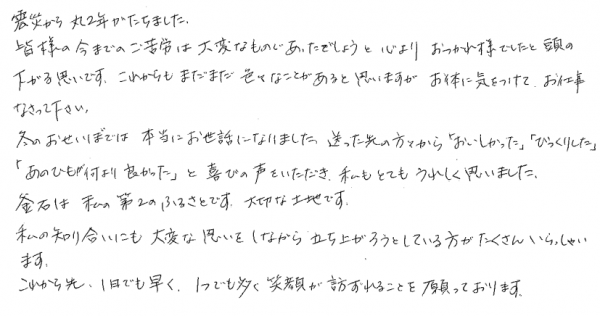 震災から丸2年がたちました。
皆様の今までのご苦労は大変なものであったでしょうと心よりおつかれ様でしたと頭の
下がる思いです。これからもまだまだ色々なことがあると思いますがお体に気をつけて、お仕事
なさって下さい。
冬のおせいぼでは本当にお世話になりました。送った先の方々から「おいしかった」「びっくりした」
「あのひもが何より良かった」と喜びの声をいただき、私もとてもうれしく思いました。
釜石は私の第2のふるさとです。大切な土地です。
私の知り合いにも大変な思いをしながら立ち上がろうとしている方がたくさんいらっしゃい
ます。
これから先、1日でも早く、1つでも多く笑顔が訪ずれることを願っております。